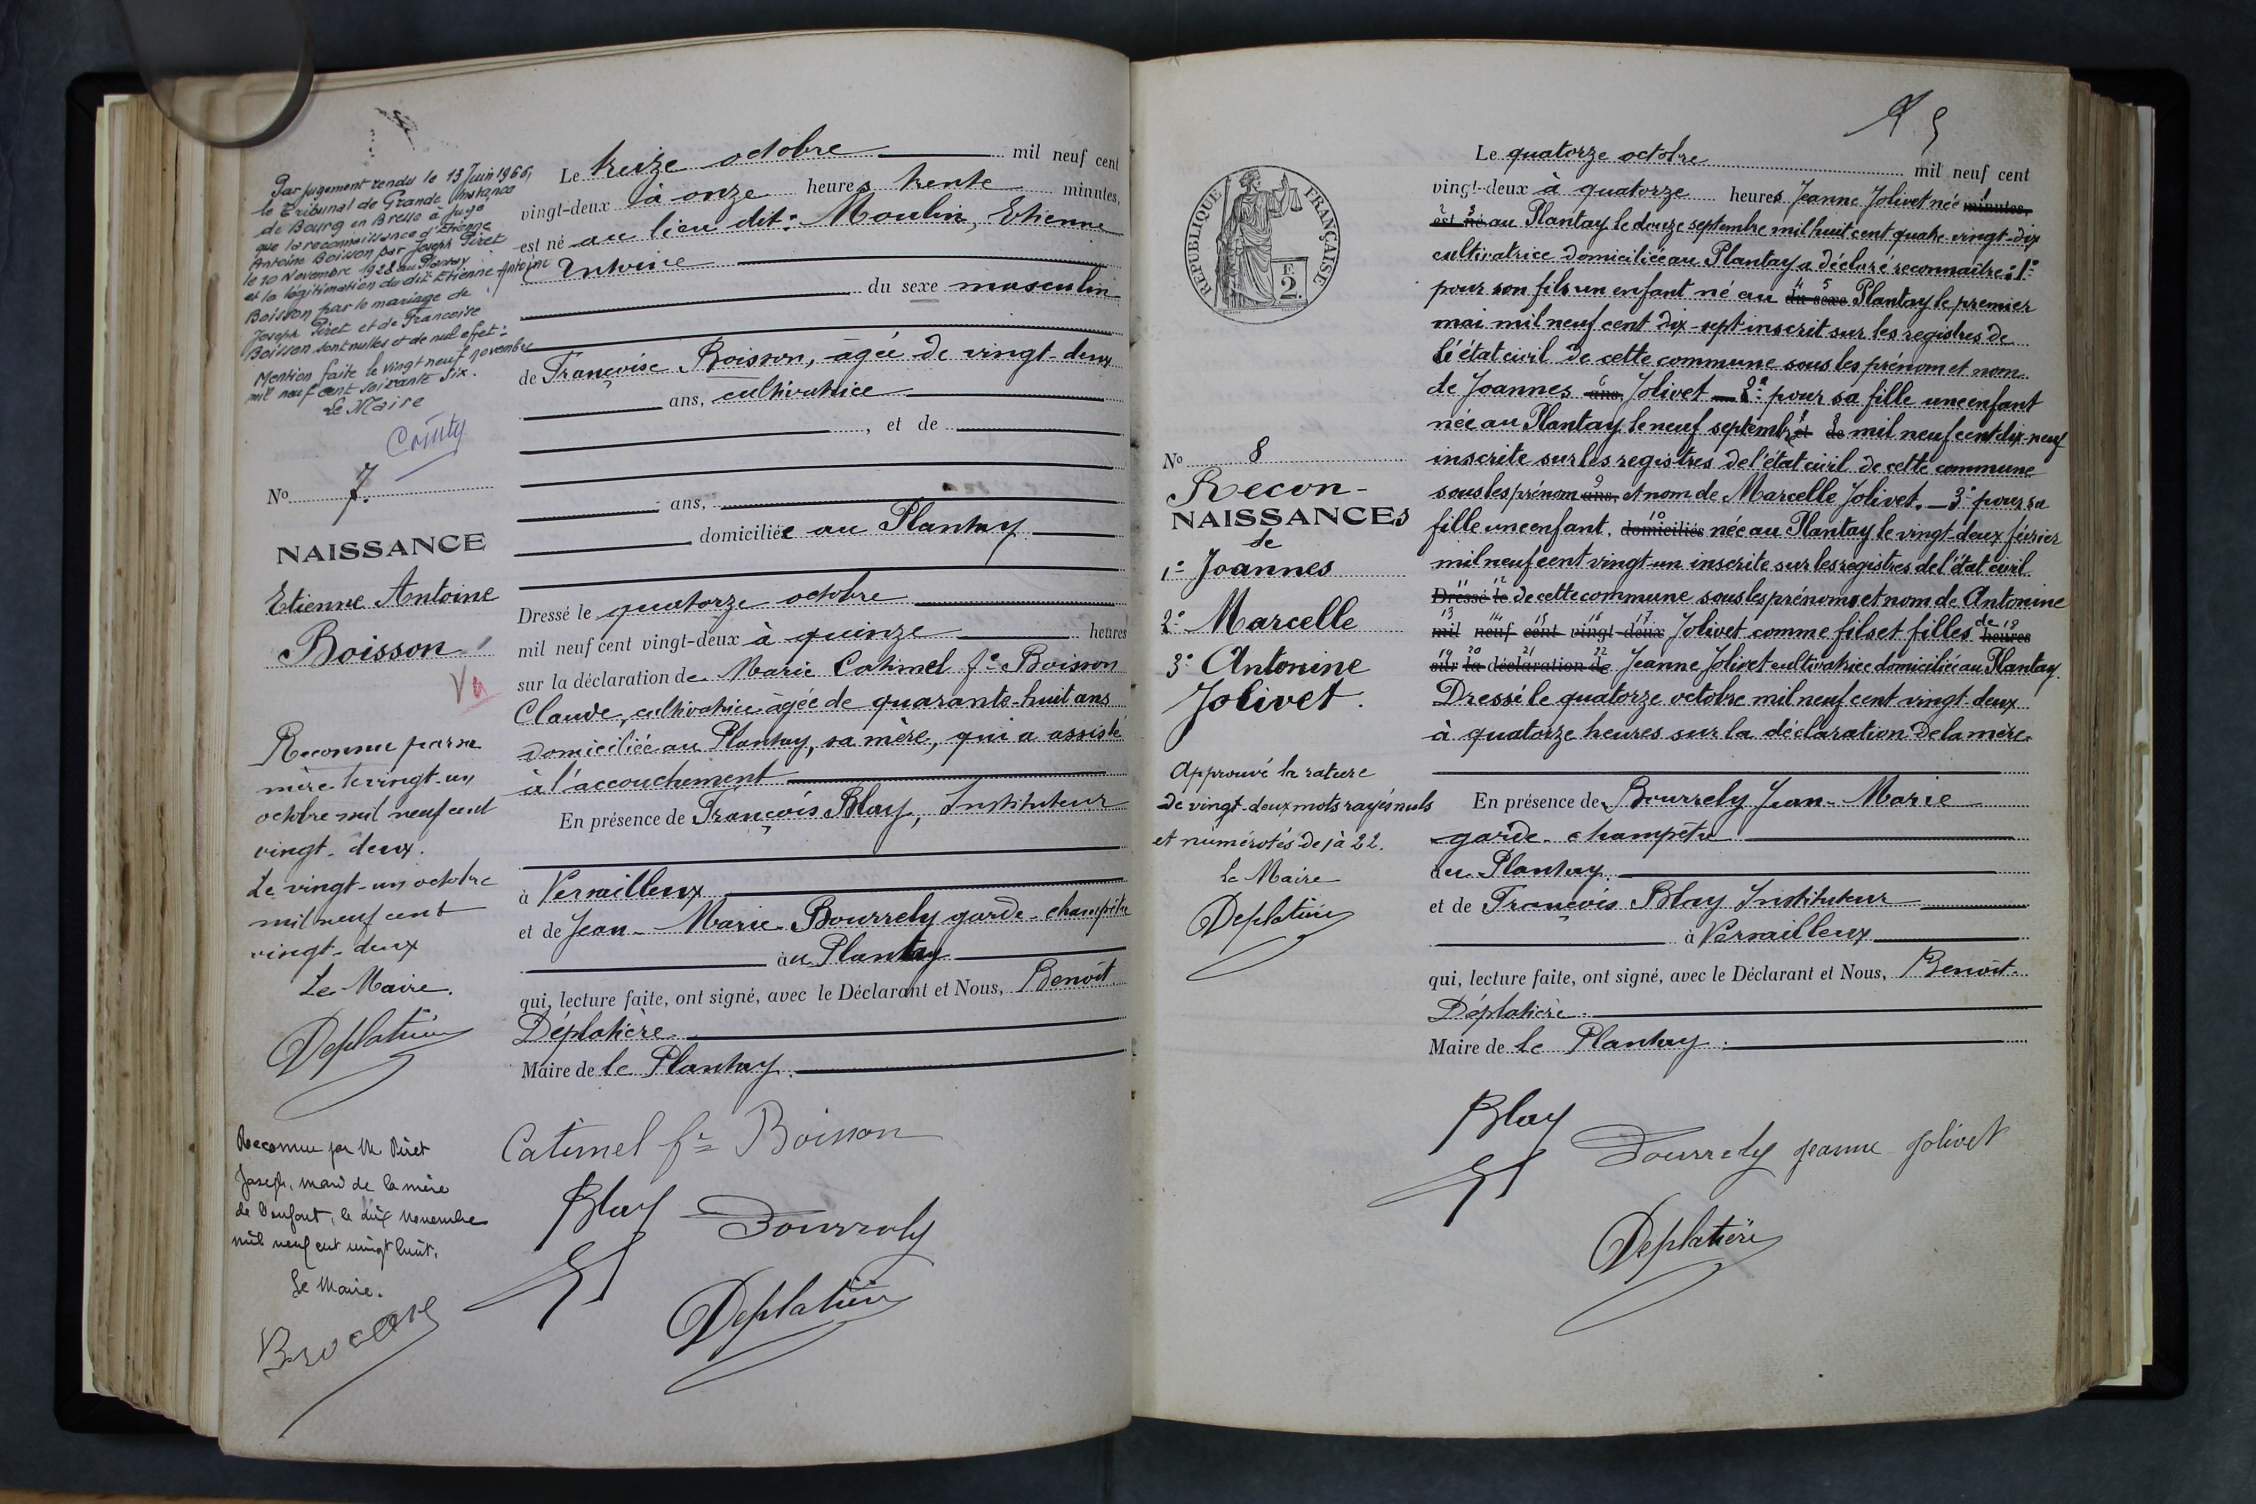 Par jugement rendu le 13 Juin 1966,
le Tribunal de Grande Instance
de Bourg en Bresse a jugé
que la reconnaissance d'Etienne
Antoine Boisson par Joseph Piret
le 10 Novembre 1928 au Plantay
et la légitimation du dit Etienne Antoine
Boisson par le mariage de
Joseph Piret et de Françoise
Boisson sont nulles et de nul effet :
Mention faite le vingt neuf novembre
mil neuf cent soixante six.
Le Maire
No 7.
NAISSANCE
Etienne Antoine
Boisson
Vu
Reconnu par sa
mère le vingt-un
octobre mil neuf cent
vingt-deux.
Le vingt-un octobre
mil neuf cent
vingt-deux
Le Maire.
Deplatière
Reconnu par M Piret
Joseph, mari de la mère
de l'enfant, le dix novembre
mil neuf cent vingt huit.
Le Maire.
Le treize octobre mil neuf cent
vingt-deux à onze heures trente minutes,
est né au lieu dit: Moulin, Etienne
Antoine
du sexe masculin
de Françoise Boisson, âgée de vingt-deux
ans, cultivatrice
, et de
ans,
domiciliée au Plantay
Dressé le quatorze octobre
mil neuf cent vingt-deux à quinze heures
sur la déclaration de Marie Catimel fe Boisson
Claude, cultivatrice âgée de quarante-huit ans
domiciliée au Plantay, sa mère, qui a assisté
à l'accouchement
En présence de François Blay, Instituteur
à Versailleux
et de Jean-Marie Bourrely garde-champêtre
au Plantay
qui, lecture faite, ont signé, avec le Déclarant et Nous, Benoît
Déplatière
Maire de le Plantay.
Catimel fe Boisson
Blay Bourrely
Deplatière
5
RÉPUBLIQUE FRANÇAISE
F.
2.
No 8
Recon-
NAISSANCEs
de
1° Joannes
2° Marcelle
3° Antonine
Jolivet.
Approuvé la rature
de vingt-deux mots rayés nuls
et numérotés de 1 à 22.
Le Maire
Deplatière
Le quatorze octobre mil neuf cent
vingt-deux à quatorze heures Jeanne Jolivet née minutes,
est né au Plantay le douze septembre mil huit cent quatre-vingt-dix
cultivatrice domiciliée au Plantay a déclaré reconnaître : 1°
pour son fils un enfant né au du sexe Plantay le premier
mai mil neuf cent dix-sept inscrit sur les registres de
l'état civil de cette commune sous les prénom et nom
de Joannes ans, Jolivet — 2° pour sa fille une enfant
née au Plantay le neuf septembre et de mil neuf cent dix-neuf
inscrite sur les registres de l'état civil de cette commune
sous les prénom ans, et nom de Marcelle Jolivet. — 3° pour sa
fille une enfant, domiciliés née au Plantay le vingt-deux février
mil neuf cent vingt-un inscrite sur les registres de l'état civil
Dressé le de cette commune sous les prénoms et nom de Antonine
mil neuf cent vingt-deux Jolivet comme fils et filles de heures
sur la déclaration de Jeanne Jolivet cultivatrice domiciliée au Plantay.
Dressé le quatorze octobre mil neuf cent vingt-deux
à quatorze heures sur la déclaration de la mère.
En présence de Bourrely Jean-Marie
garde-champêtre
au Plantay.
et de François Blay Instituteur
à Versailleux
qui, lecture faite, ont signé, avec le Déclarant et Nous, Benoît
Déplatière
Maire de le Plantay.
Blay Bourrely jeanne jolivet
Deplatière